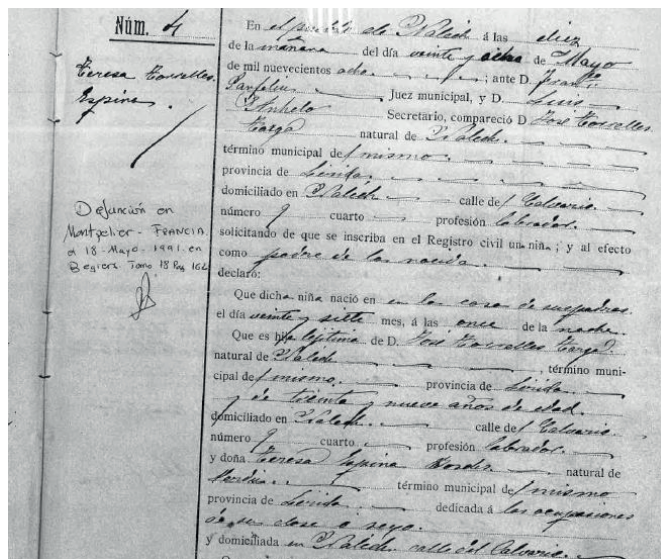 Núm. 4
Teresa Torrelles
Espina
Defunción en
Montpelier - FRANCIA.
a 18 - Mayo - 1991. en
Beziers Tomo 18 Pag 162
En el pueblo de Nalech á las diez
de la mañana del día veinte y ocho de Mayo
de mil nuevecientos ocho ; ante D. Fran.co
Juez municipal, y D. Luis
Secretario, compareció D José Torrelles
Targa natural de Nalech.
término municipal del mismo.
provincia de Lérida.
domiciliado en Nalech calle del Calvario
número 9 cuarto profesión labrador.
solicitando de que se inscriba en el Registro civil un niña ; y al efecto
como padre de la nacida.
declaró:
Que dicha niña nació en en la casa de sus padres
el día veinte y siete mes, á las once de la noche.
Que es hija legítima de D. José Torrelles Targa
natural de Nalech , término muni-
cipal del mismo. provincia de Lérida
y de treinta y nueve años de edad.
domiciliado en Nalech. calle del Calvario.
número 9 cuarto profesión labrador.
y doña Teresa Espina natural de
término municipal del mismo
provincia de Lérida dedicada á las ocupaciones
de su clase o sexo.
y domiciliada en Nalech calle del Calvario.